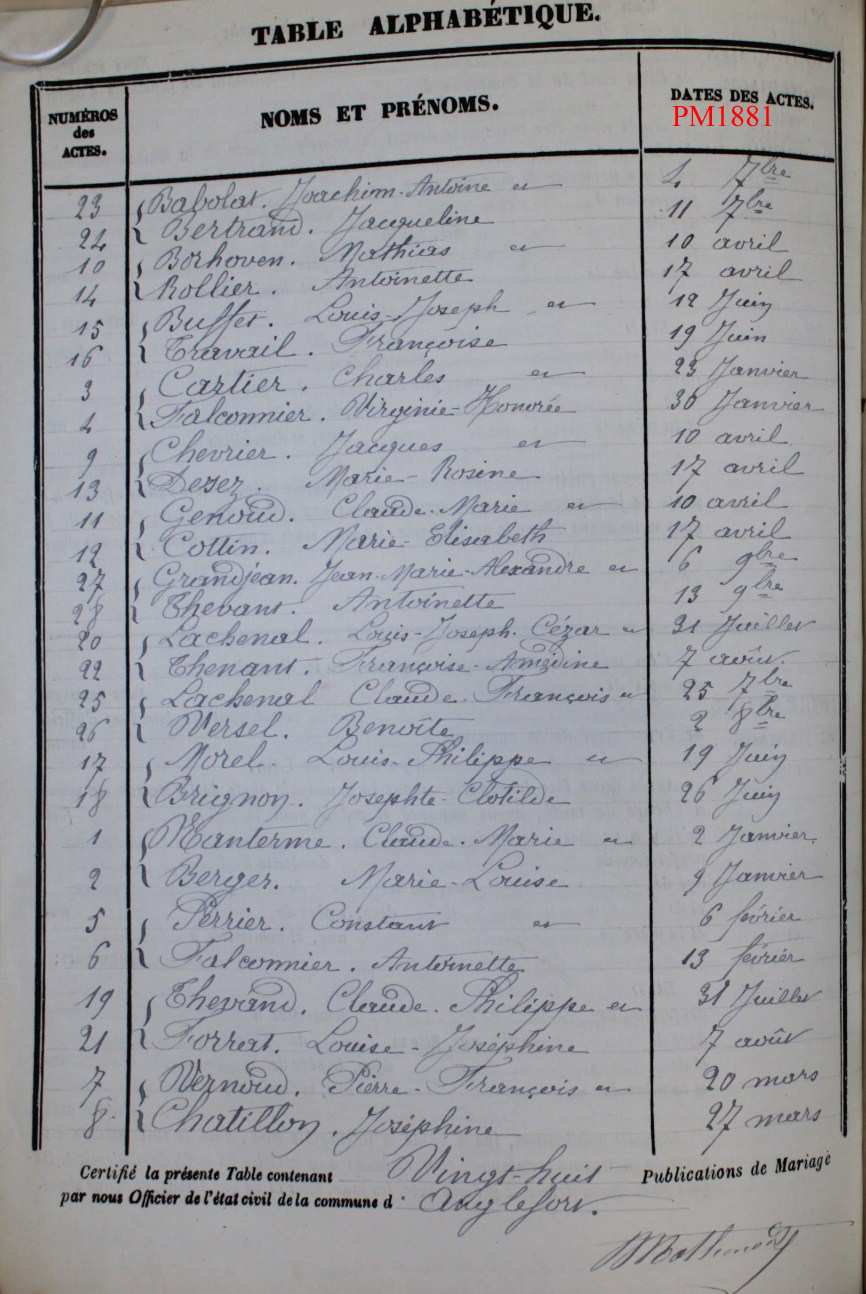 TABLE ALPHABÉTIQUE.
NUMÉROS des ACTES. NOMS ET PRÉNOMS. DATES DES ACTES.
PM1881
23 Babolat. Joachim-Antoine et 4 7bre
24 Bertrand. Jacqueline 11 7bre
10 Borhoven. Mathias et 10 avril
14 Rollier. Antoinette 17 avril
15 Buffet. Louis-Joseph et 12 Juin
16 Travail. Françoise 19 Juin
3 Cartier. Charles et 23 Janvier
4 Falconnier. Virginie-Honorée 30 Janvier
9 Chevrier. Jacques et 10 avril
13 Dezez. Marie-Rosine 17 avril
11 Genoud. Claude-Marie et 10 avril
12 Cottin. Marie-Elisabeth 17 avril
27 Grandjean. Jean-Marie-Alexandre et 6 9bre
28 Thevant. Antoinette 13 9bre
20 Lachenal. Louis-Joseph-Cézar et 31 Juillet
22 Thenant. Françoise-Amédine 7 août.
25 Lachenal Claude-François et 25 7bre
26 Versel. Benoîte 2 8bre
17 Morel. Louis-Philippe et 19 Juin
18 Brignon. Josephte-Clotilde 26 Juin
1 Manterme. Claude-Marie et 2 Janvier.
2 Berger. Marie-Louise 9 Janvier
5 Perrier. Constant et 6 février
6 Falconnier. Antoinette 13 février
19 Thevand. Claude-Philippe et 31 Juillet
21 Forrat. Louise-Joséphine 7 août
7 Vernoud. Pierre-François et 20 mars
8 Chatillon. Joséphine 27 mars
Certifié la présente Table contenant Vingt-huit Publications de Mariage
par nous Officier de l'état civil de la commune d' Anglefort.